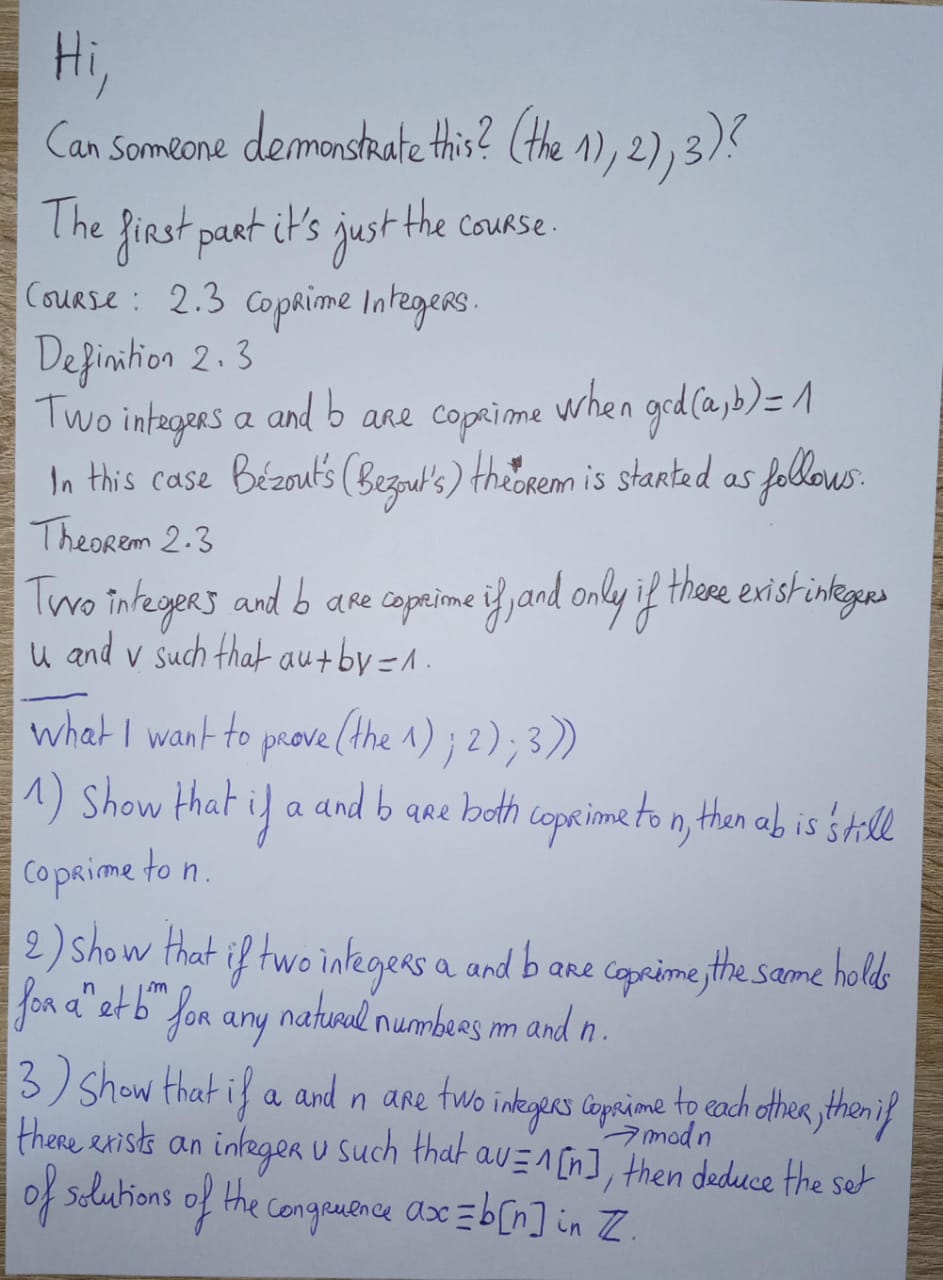 Hi,
Can someone demonstrate this? (the 1), 2), 3)?
The first part it's just the course.
Course : 2.3 Coprime Integers.
Definition 2.3
Two integers a and b are coprime when gcd(a,b)=1
In this case Bézout's (Bezout's) theorem is started as follows.
Theorem 2.3
Two integers and b are coprime if, and only if there exist integers
u and v such that au+bv=1.
What I want to prove (the 1) ; 2) ; 3))
1) Show that if a and b are both coprime to n, then ab is still
coprime to n.
2) Show that if two integers a and b are coprime, the same holds
for aⁿ et bᵐ for any natural numbers m and n.
3) Show that if a and n are two integers coprime to each other, then if
→ mod n
there exists an integer u such that au≡1[n], then deduce the set
of solutions of the congruence ax≡b[n] in ℤ.